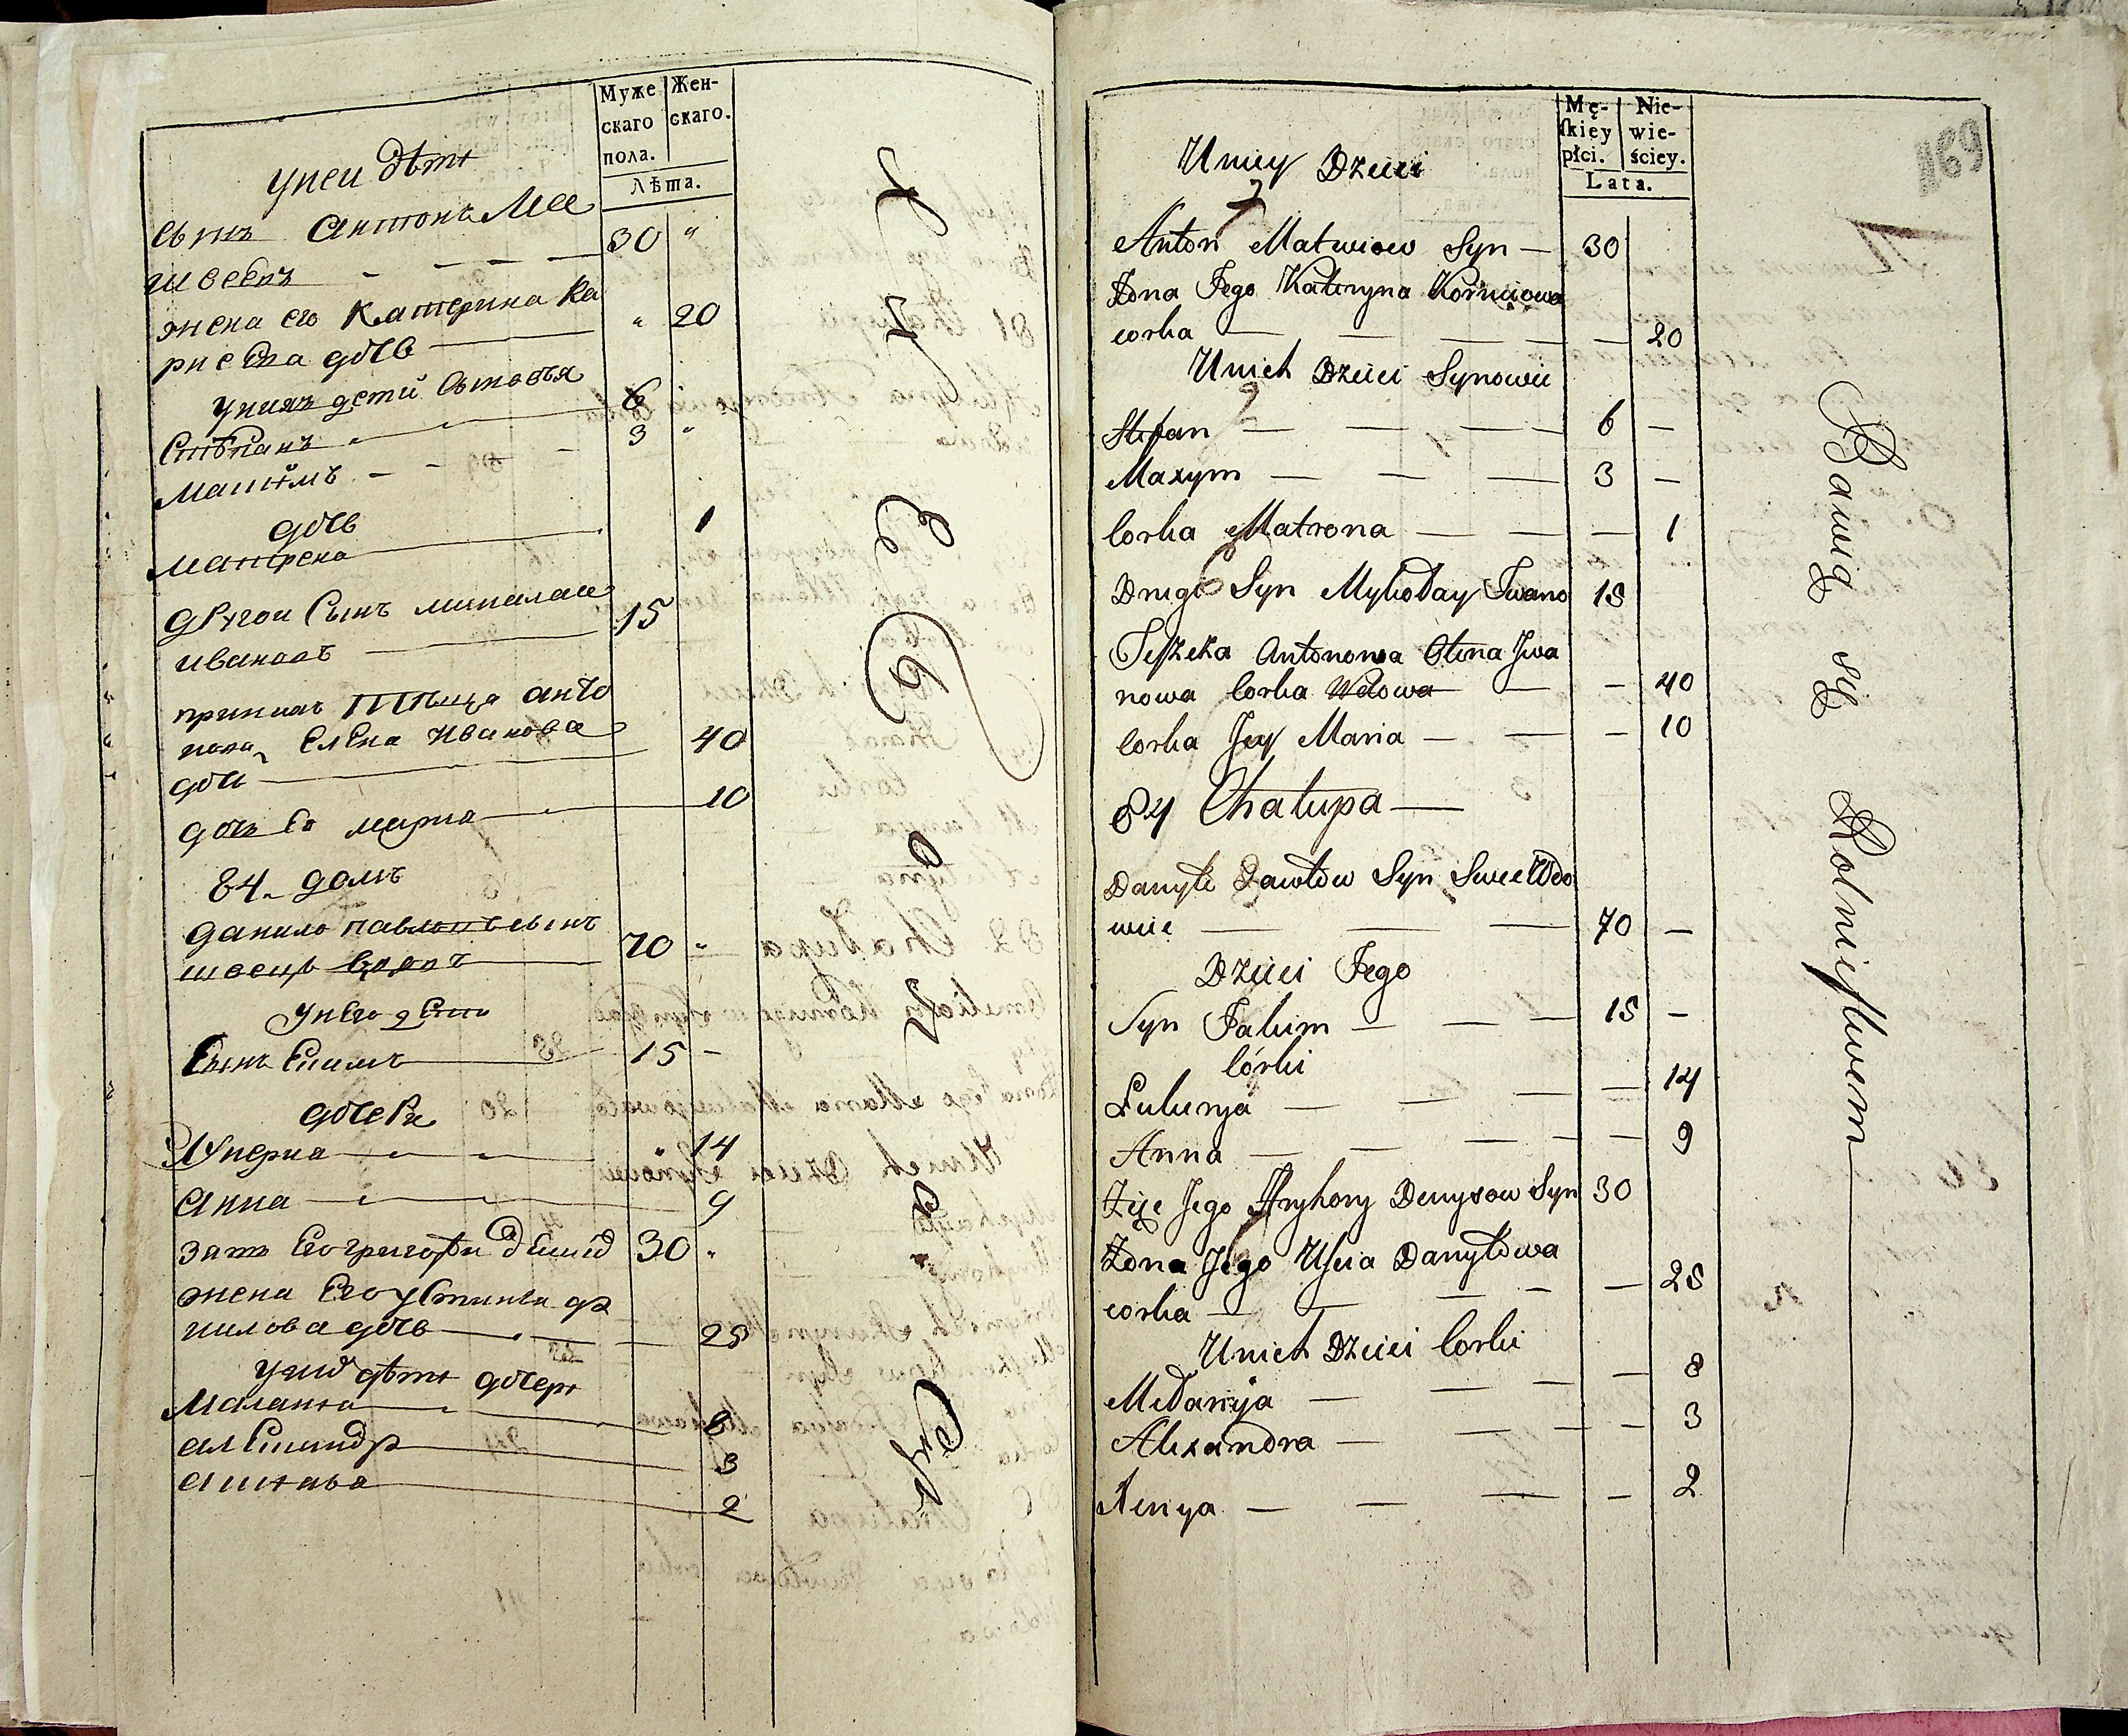 Муже
скаго
пола.
Жен-
скаго.
Лѣта.
унеи дѣти
сынъ Антонъ Ма
твеевъ 30 "
жена его Катерина Ка
рнеева дочь " 20
унихъ дети сыновья
Степанъ 6
Максимъ 3 "
дочь
Матрена 1
другои сынъ
Ивановъ 15
Теща Анто
нова Елена Иванова
дочь 40
дочь ее Мария 10
84. домъ
Данило Павловъ сынъ
швецъ вдовъ 70 "
унего дети
сынъ Екимъ 15 -
дочери
Лукерия " 14
Анна 9
зять его Григореи Денисо 30 "
жена его Устинья Да
нилова дочь 25
унихъ дѣти дочери
Маланья 8
Александра 3
Аксинья 2
Mę-
skiey
płci.
Nie-
wie-
ściey.
Lata.
169
Uniey Dzieci
Anton Matwiow Syn — 30
Żona Jego Kateryna Korniiowa
corka — — — — 20
Unich Dzieci Synowie
Stefan — — — 6 —
Maxym — — — 3 —
Corka Matrona — — — 1
Drugi Syn Mykołay Iwano 15
Teszcza Antonowa Ołena Iwa
nowa Corka Wdowa — — 40
Corka Jey Maria — — — 10
84 Chałupa —
Danyło Pawłow Syn Szwec Wdo
wiec — — — 70 —
Dzieci Jego
Syn Jakim — — — 15 —
Córki
Łukerya — — — — 14
Anna — — — — 9
Zięć Jego Hryhory Denysow Syn 30
Żona Jego Uscia Danyłowa
corka — — — — — 25
Unich Dzieci Corki
Mełanija — — — — 8
Alexandra — — — — 3
Xenya — — — — 2
Bawią się Rolnictwem